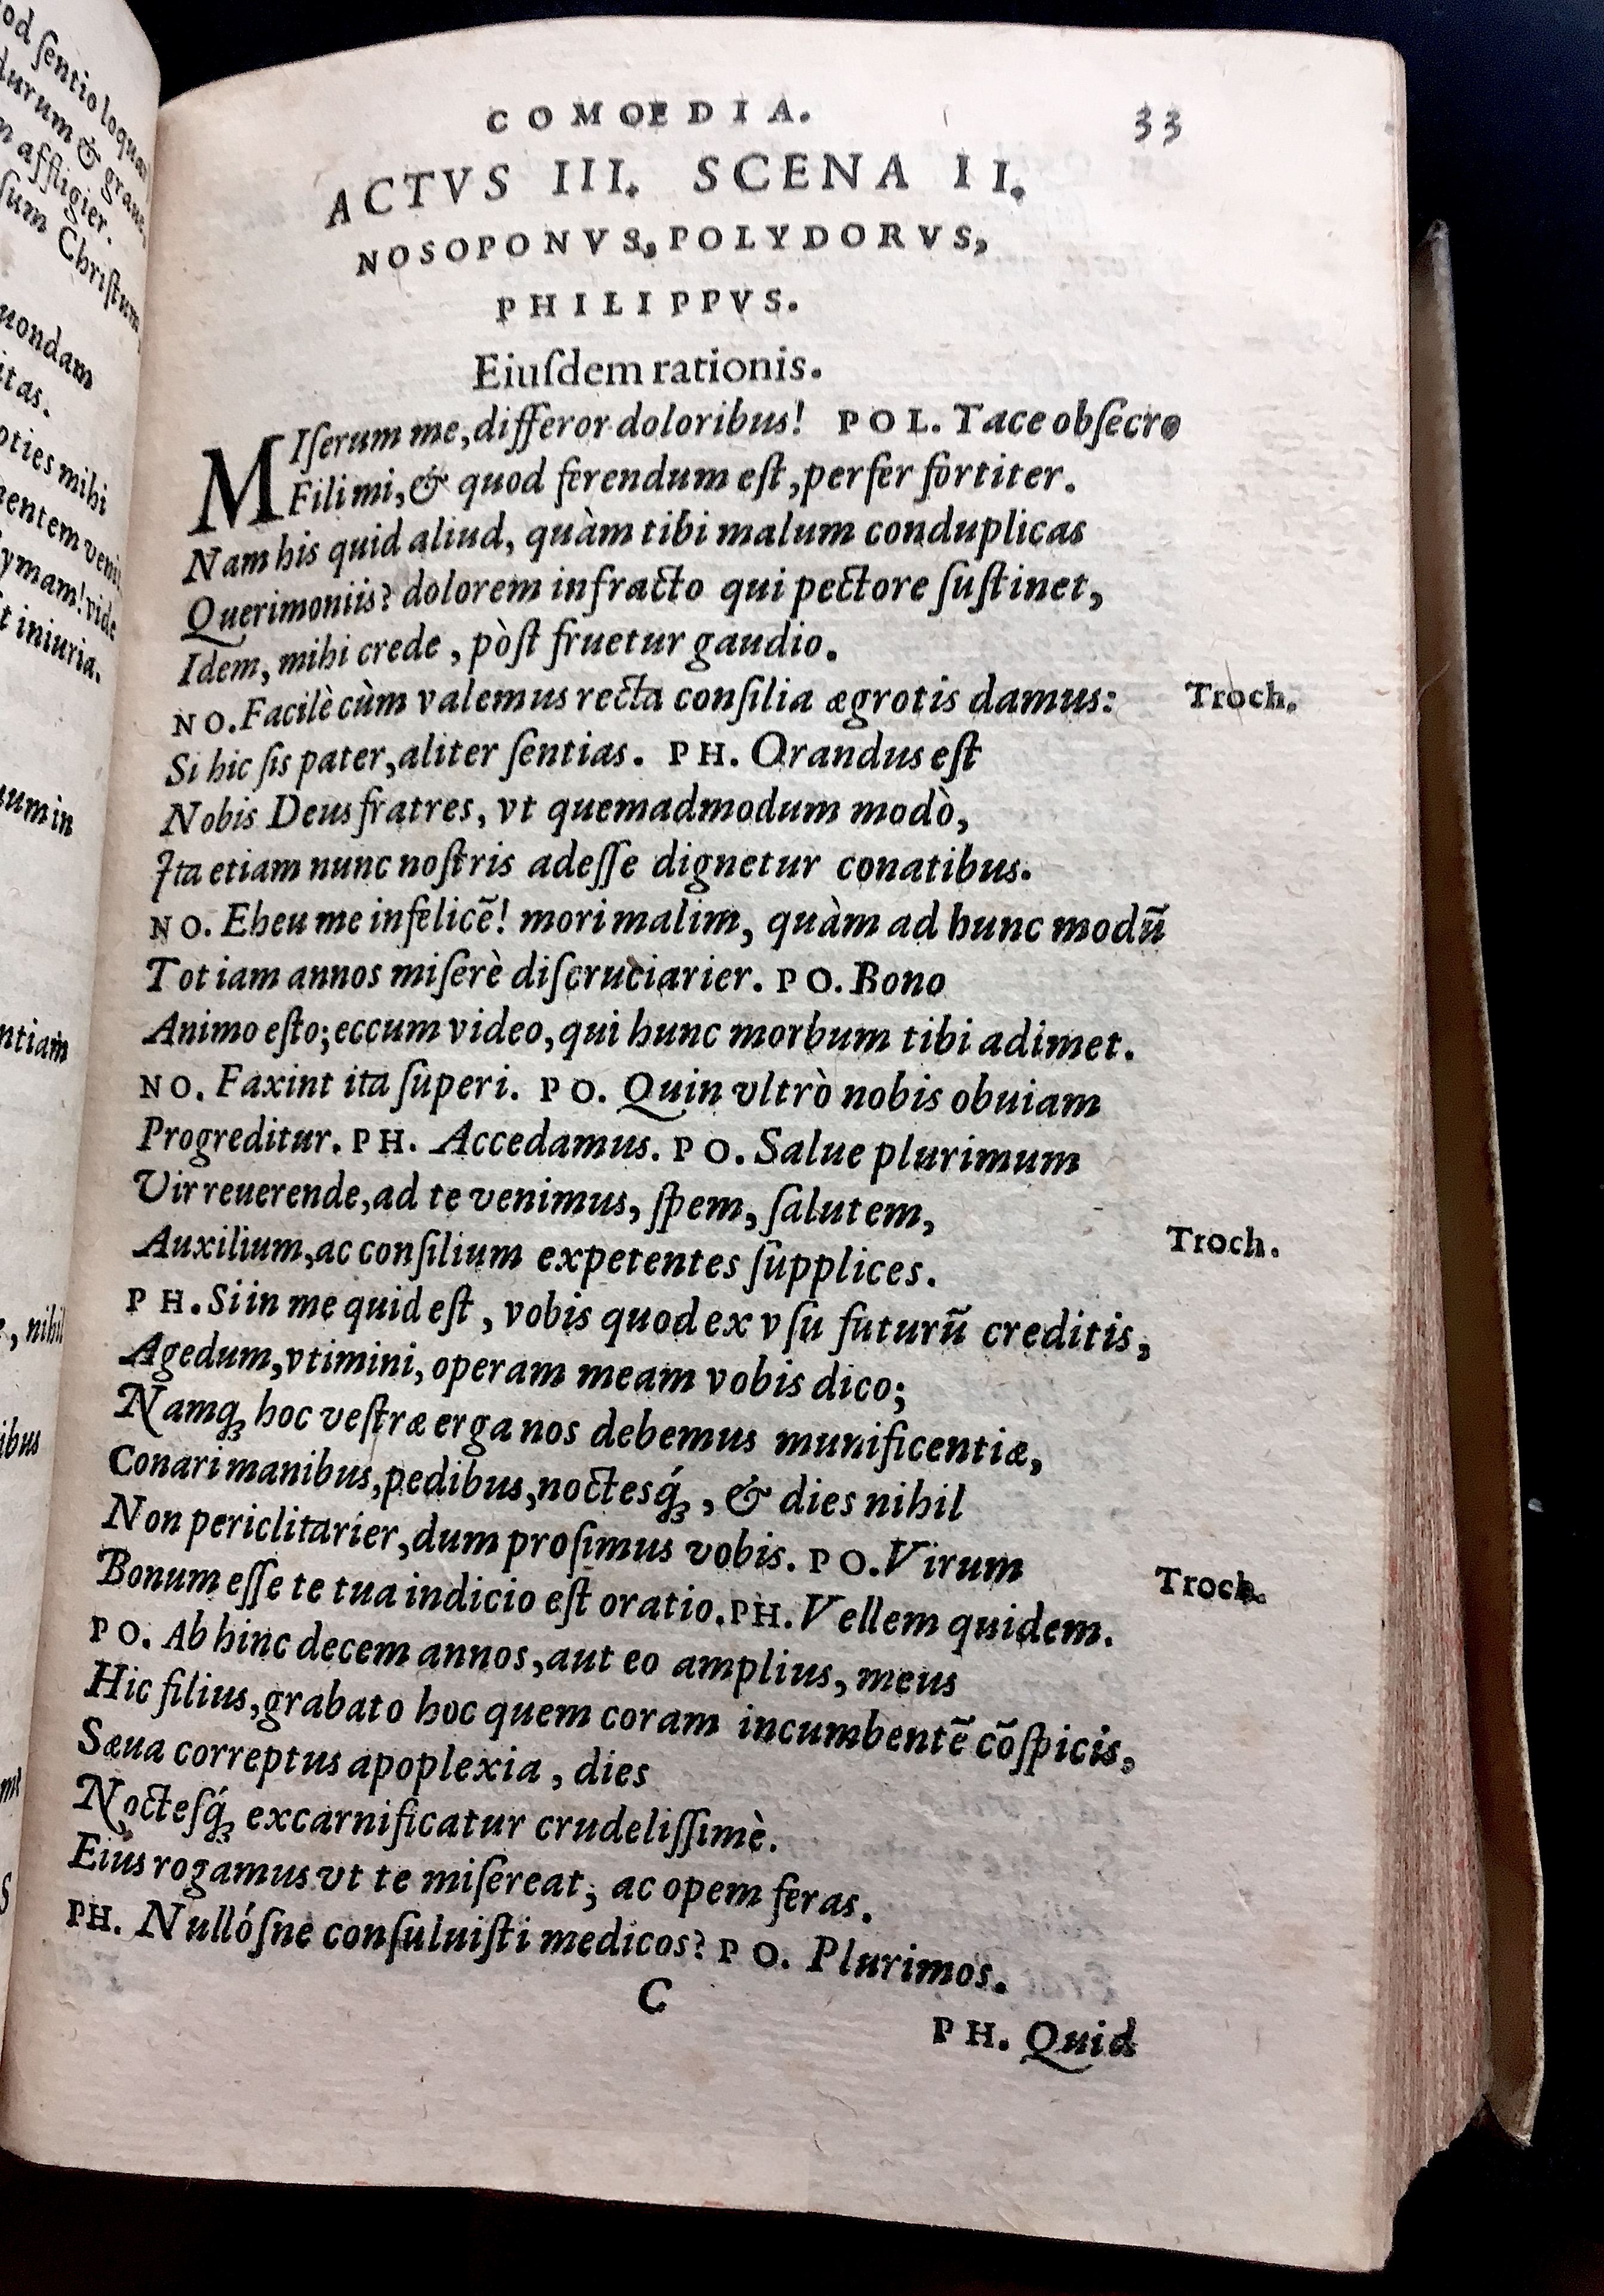 od ſentio loquar
durum & graue,
n affligier.
ſum Chriſtum
uondam
itas.
oties mihi
nentem veni
ymam! vide
t iniuria.
sum in
ntiam
e, nihil
ibus
COMOEDIA. 33
ACTVS III. SCENA II.
NOSOPONVS, POLYDORVS,
PHILIPPVS.
Eiuſdem rationis.
MIſerum me, differor doloribus! POL. Tace obſecro
Fili mi, & quod ferendum eſt, perfer fortiter.
Nam his quid aliud, quàm tibi malum conduplicas
Querimoniis? dolorem infracto qui pectore ſuſtinet,
Idem, mihi crede, pòſt fruetur gaudio.
NO. Facilè cùm valemus recta conſilia ægrotis damus: Troch.
Si hic ſis pater, aliter ſentias. PH. Orandus eſt
Nobis Deus fratres, vt quemadmodum modò,
Ita etiam nunc noſtris adeſſe dignetur conatibus.
NO. Eheu me infelicē! mori malim, quàm ad hunc modū
Tot iam annos miſerè diſcruciarier. PO. Bono
Animo eſto; eccum video, qui hunc morbum tibi adimet.
NO. Faxint ita ſuperi. PO. Quin vltrò nobis obuiam
Progreditur. PH. Accedamus. PO. Salue plurimum
Vir reuerende, ad te venimus, ſpem, ſalutem,
Auxilium, ac conſilium expetentes ſupplices. Troch.
PH. Si in me quid eſt, vobis quod ex vſu futurū creditis,
Agedum, vtimini, operam meam vobis dico;
Namq́; hoc veſtræ erga nos debemus munificentiæ,
Conari manibus, pedibus, noctesq́;, & dies nihil
Non periclitarier, dum proſimus vobis. PO. Virum
Bonum eſſe te tua indicio eſt oratio. PH. Vellem quidem. Troch.
PO. Ab hinc decem annos, aut eo amplius, meus
Hic filius, grabato hoc quem coram incumbentē cōſpicis,
Sæua correptus apoplexia, dies
Noctesq́; excarnificatur crudeliſſimè.
Eius rogamus vt te miſereat, ac opem feras.
PH. Nullóſne conſuluiſti medicos? PO. Plurimos.
C
PH. Quid